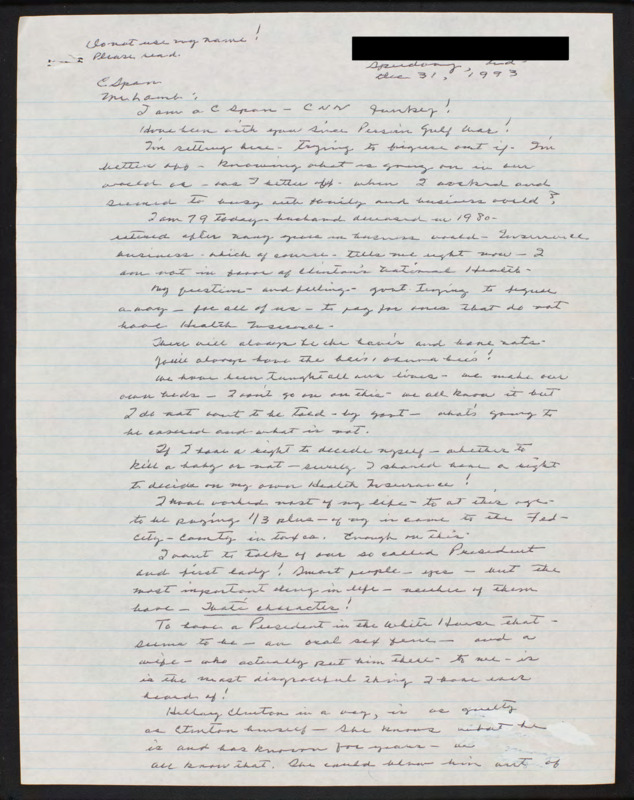 Do not use my name!
Please read.
Speedway, Ind-
Dec 31, 1993
C Span
Mr. Lamb:
I am a C Span - CNN Junkey!
Have been with you since Persin Gulf War!
I'm setting here - trying to figure out if I'm
better off - knowing what is going on in our
world or - was I better off - when I worked and
seemed to busy with family and business world?
I am 79 today - husband deceased in 1980 -
retired after many years in business world - Insurance
business - which of course - tells me right now - I
am not in favor of Clinton's National Health -
My question - and feeling - govt trying to figure
a way - for all of us - to pay for ones that do not
have Health Insurance -
There will always be the have's and have nots -
You'll always have the be's, wanna bees!
We have been taught all our lives - we make our
own beds - I won't go on on this - we all know it but
I do not want to be told - by govt - what's going to
be covered and what is not.
If I have a right to decide myself - whether to
kill a baby or not - surely I should have a right
to decide on my own Health Insurance!
I have worked most of my life - to at this age -
to be paying 1/3 plus - of my in come to the Fed -
City - County in taxes. Enough on this -
I want to talk of our so called President
and first lady! Smart people - yes - but the
most important thing in life - neither of them
have - That's character!
To have a President in the White House that -
seems to be - an oral sex - and a
wife - who actually put him there - to me - is
is the most disgraceful thing I have ever
heard of!
Hillary Clinton in a way, is as guilty
as Clinton himself - She knows what he
is and has known for years - we
all know that. She could blow him out of